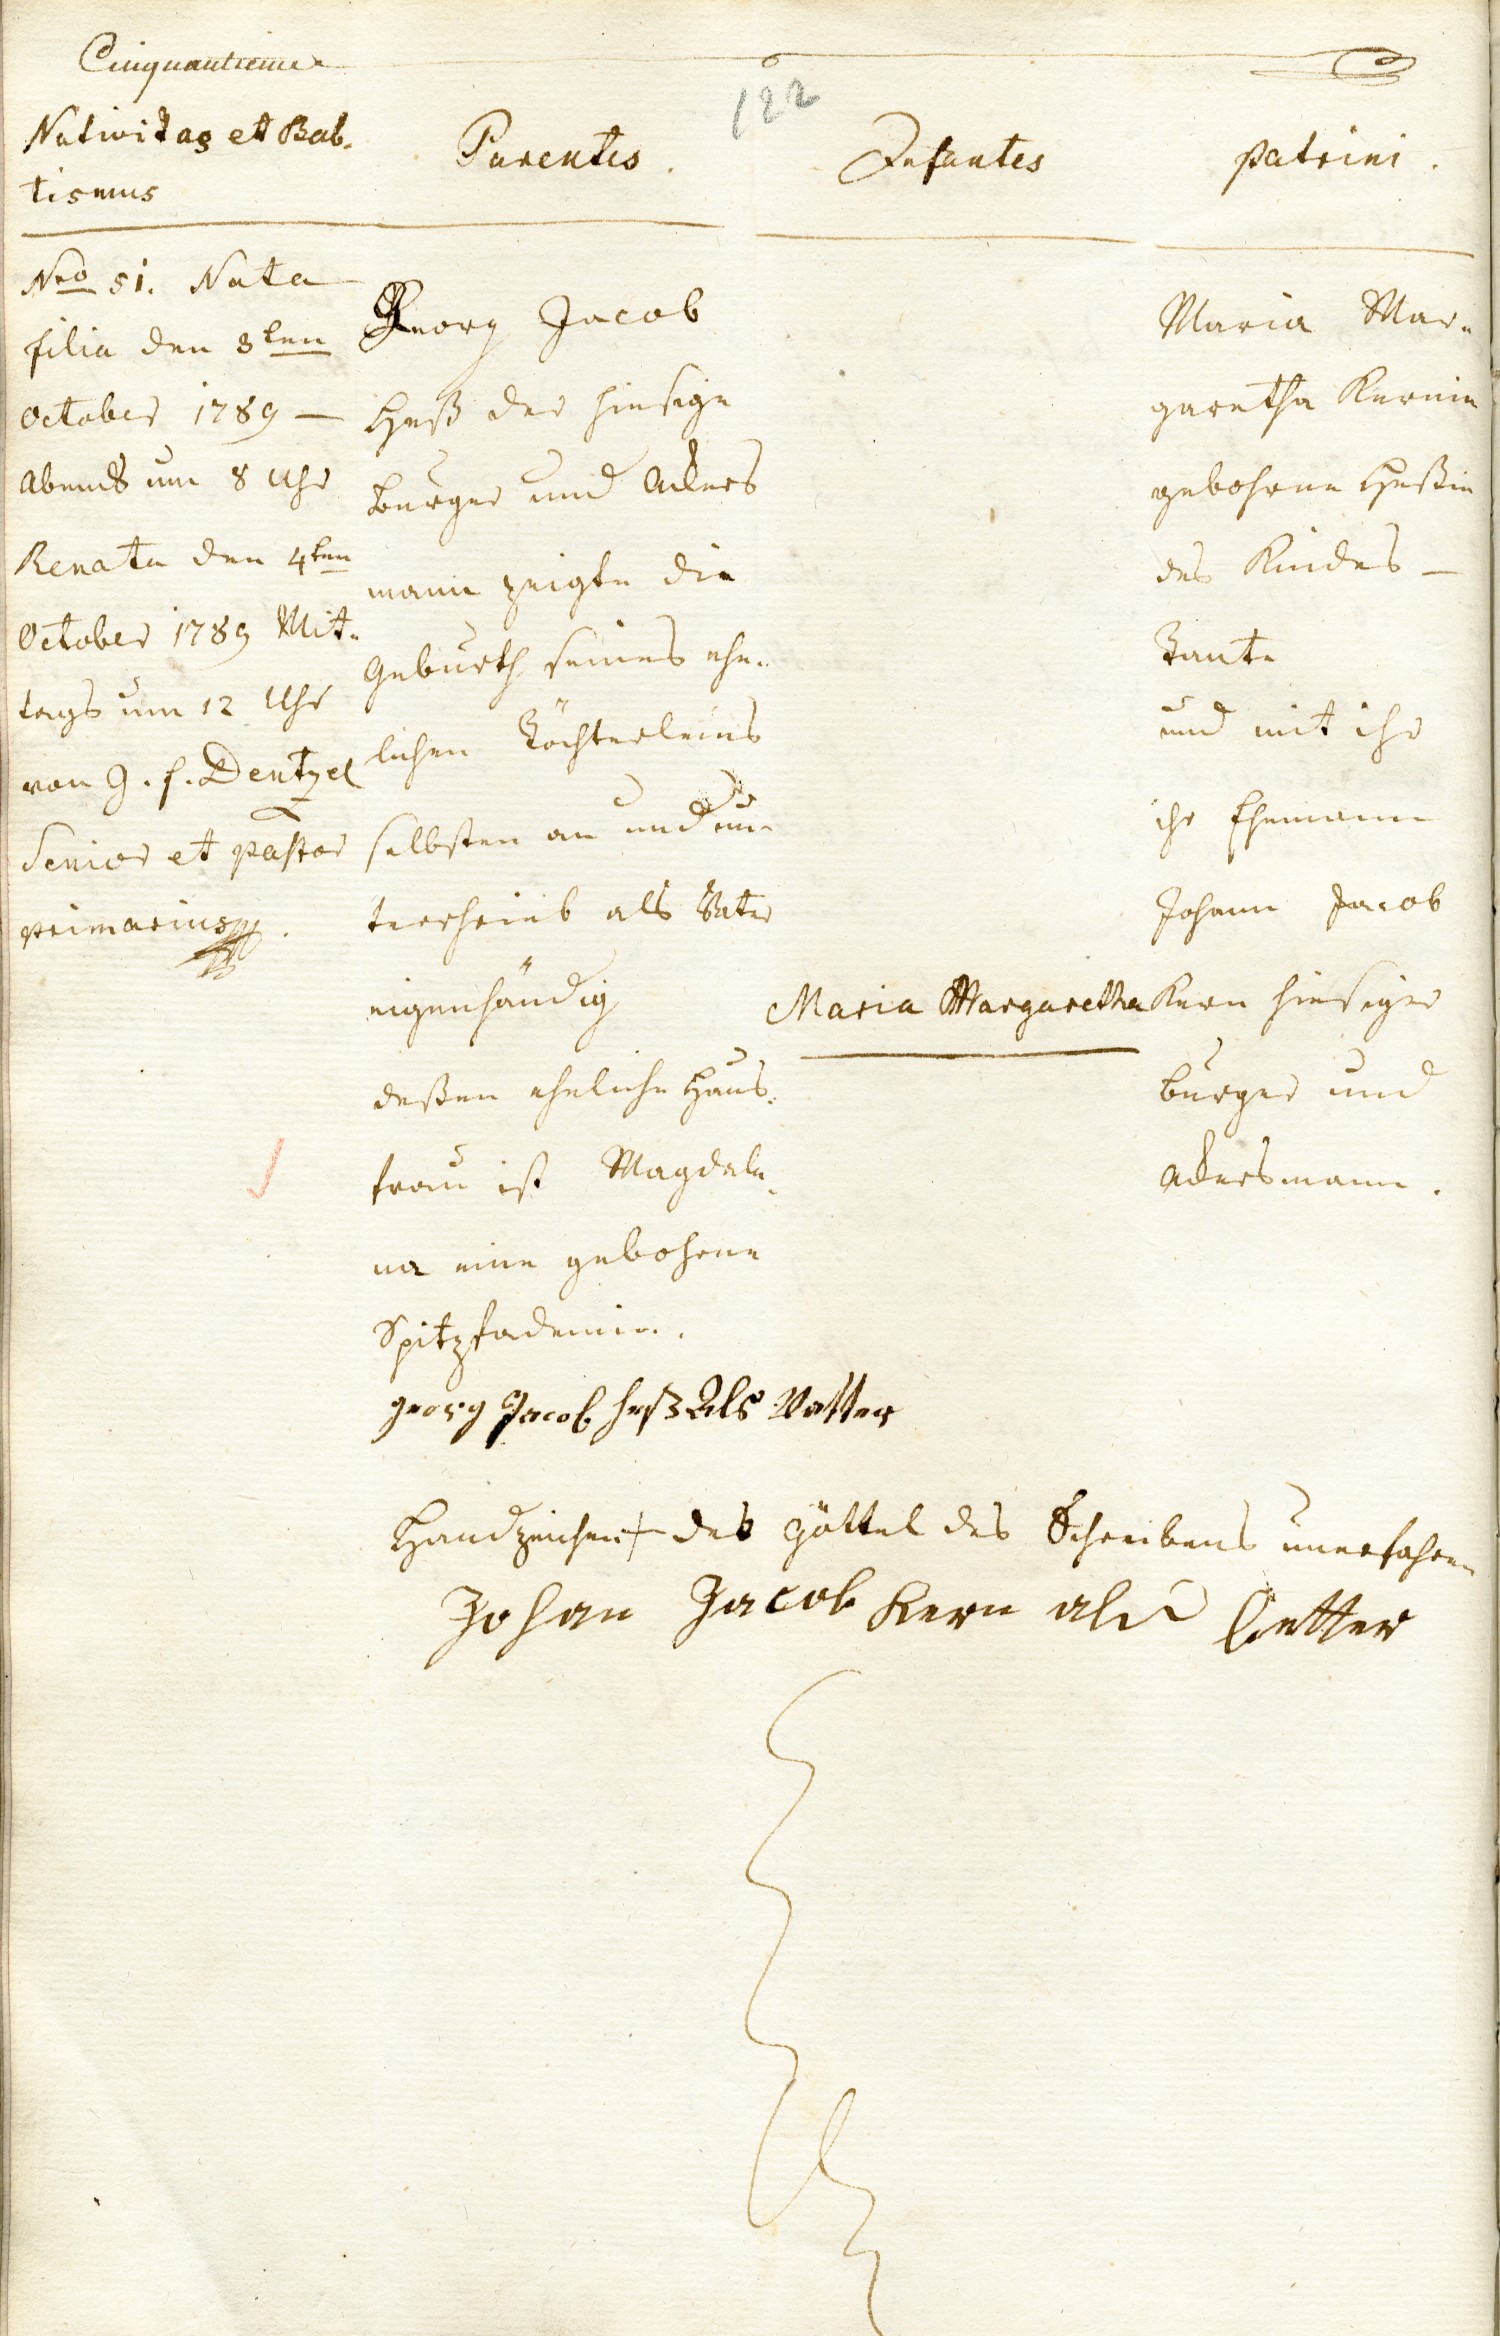 Cinquantieme
122
Nativitas et Bab-
tismus
Parentes.
Infantes
patrini.
Nro 51. Nata
filia den 3ten
October 1789 —
Abends um 8 Uhr
Renata den 4ten
October 1789 Mit-
tags um 12 Uhr
von J. f. Dentzel
Senior et pastor
primarius.
Georg Jacob
Heß der hiesige
burger und Ackers
mann zeigte die
Geburth seines ehe-
lichen Töchterleins
selbsten an und un-
terschrieb als Vater
eigenhändig
deßen eheliche Haus-
frau ist Magdale-
na eine gebohrne
Spitzfademin.
Maria Margaretha
Maria Mar-
garetha Kernin
gebohrne Heßin
des Kindes —
Tante
und mit ihr
ihr Ehemann
Johann Jacob
Kern hiesiger
burger und
Ackersmann.
georg Jacob heß Als Vatter
Handzeichen + der göttel des Schreibens unerfahren
Johan Jacob Kern als Getter